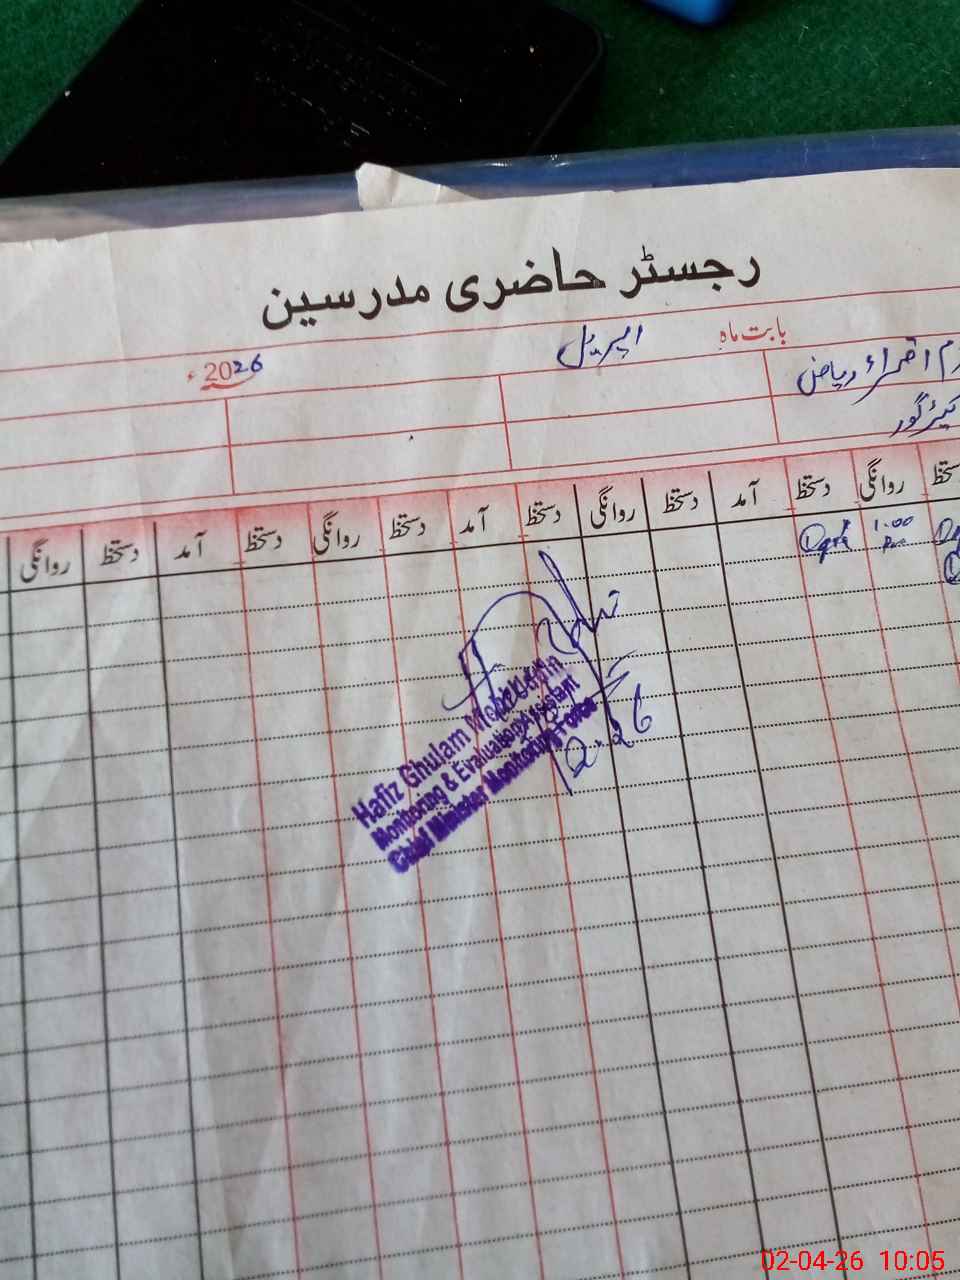 رجسٹر حاضری مدرسین
بابت ماہ اپریل 2026ء
اقراء ریاض
دستخط روانگی دستخط آمد دستخط روانگی دستخط آمد دستخط روانگی دستخط آمد دستخط روانگی
1:00
Hafiz Ghulam
Monitoring & Evaluation Assistant
Chief Minister Monitoring Force
02-04-26 10:05